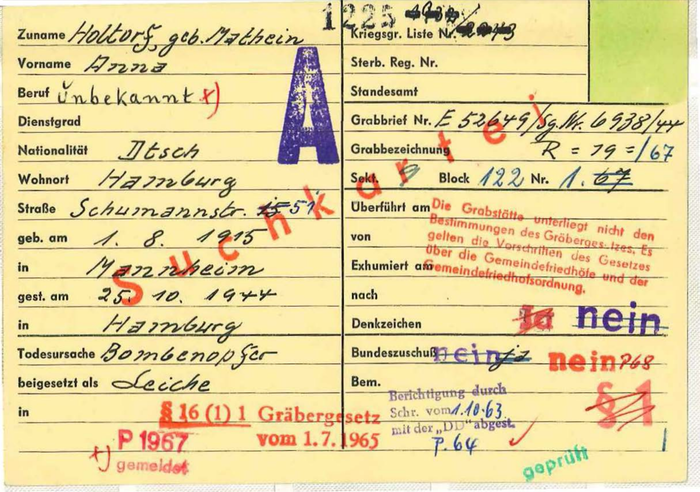 1225
Zuname Holtorf, geb. Mathein
Vorname Anna
Beruf Unbekannt +)
Dienstgrad
Nationalität Dtsch
Wohnort Hamburg
Straße Schumannstr. 51
geb. am 1. 8. 1915
in Mannheim
gest. am 25. 10. 1944
in Hamburg
Todesursache Bombenopfer
beigesetzt als Leiche
in
§ 16 (1) 1 Gräbergesetz
vom 1.7.1965
P 1967
+) gemeldet
A
Suchkartei
Kriegsgr. Liste Nr.
Sterb. Reg. Nr.
Standesamt
Grabbrief Nr. E 52649/Sg.Nr. 6938/44
Grabbezeichnung R = 19 = /67
Sekt. Block 122 Nr. 1. 67
Überführt am
von
Exhumiert am
nach
Die Grabstätte unterliegt nicht den
Bestimmungen des Gräbergesetzes. Es
gelten die Vorschriften des Gesetzes
über die Gemeindefriedhöfe und der
Gemeindefriedhofsordnung.
Denkzeichen Ja nein
Bundeszuschuß nein ja nein P68
Bem.
Berichtigung durch
Schr. vom 1.10.63
mit der „DD" abgest.
P. 64
§ 1
geprüft